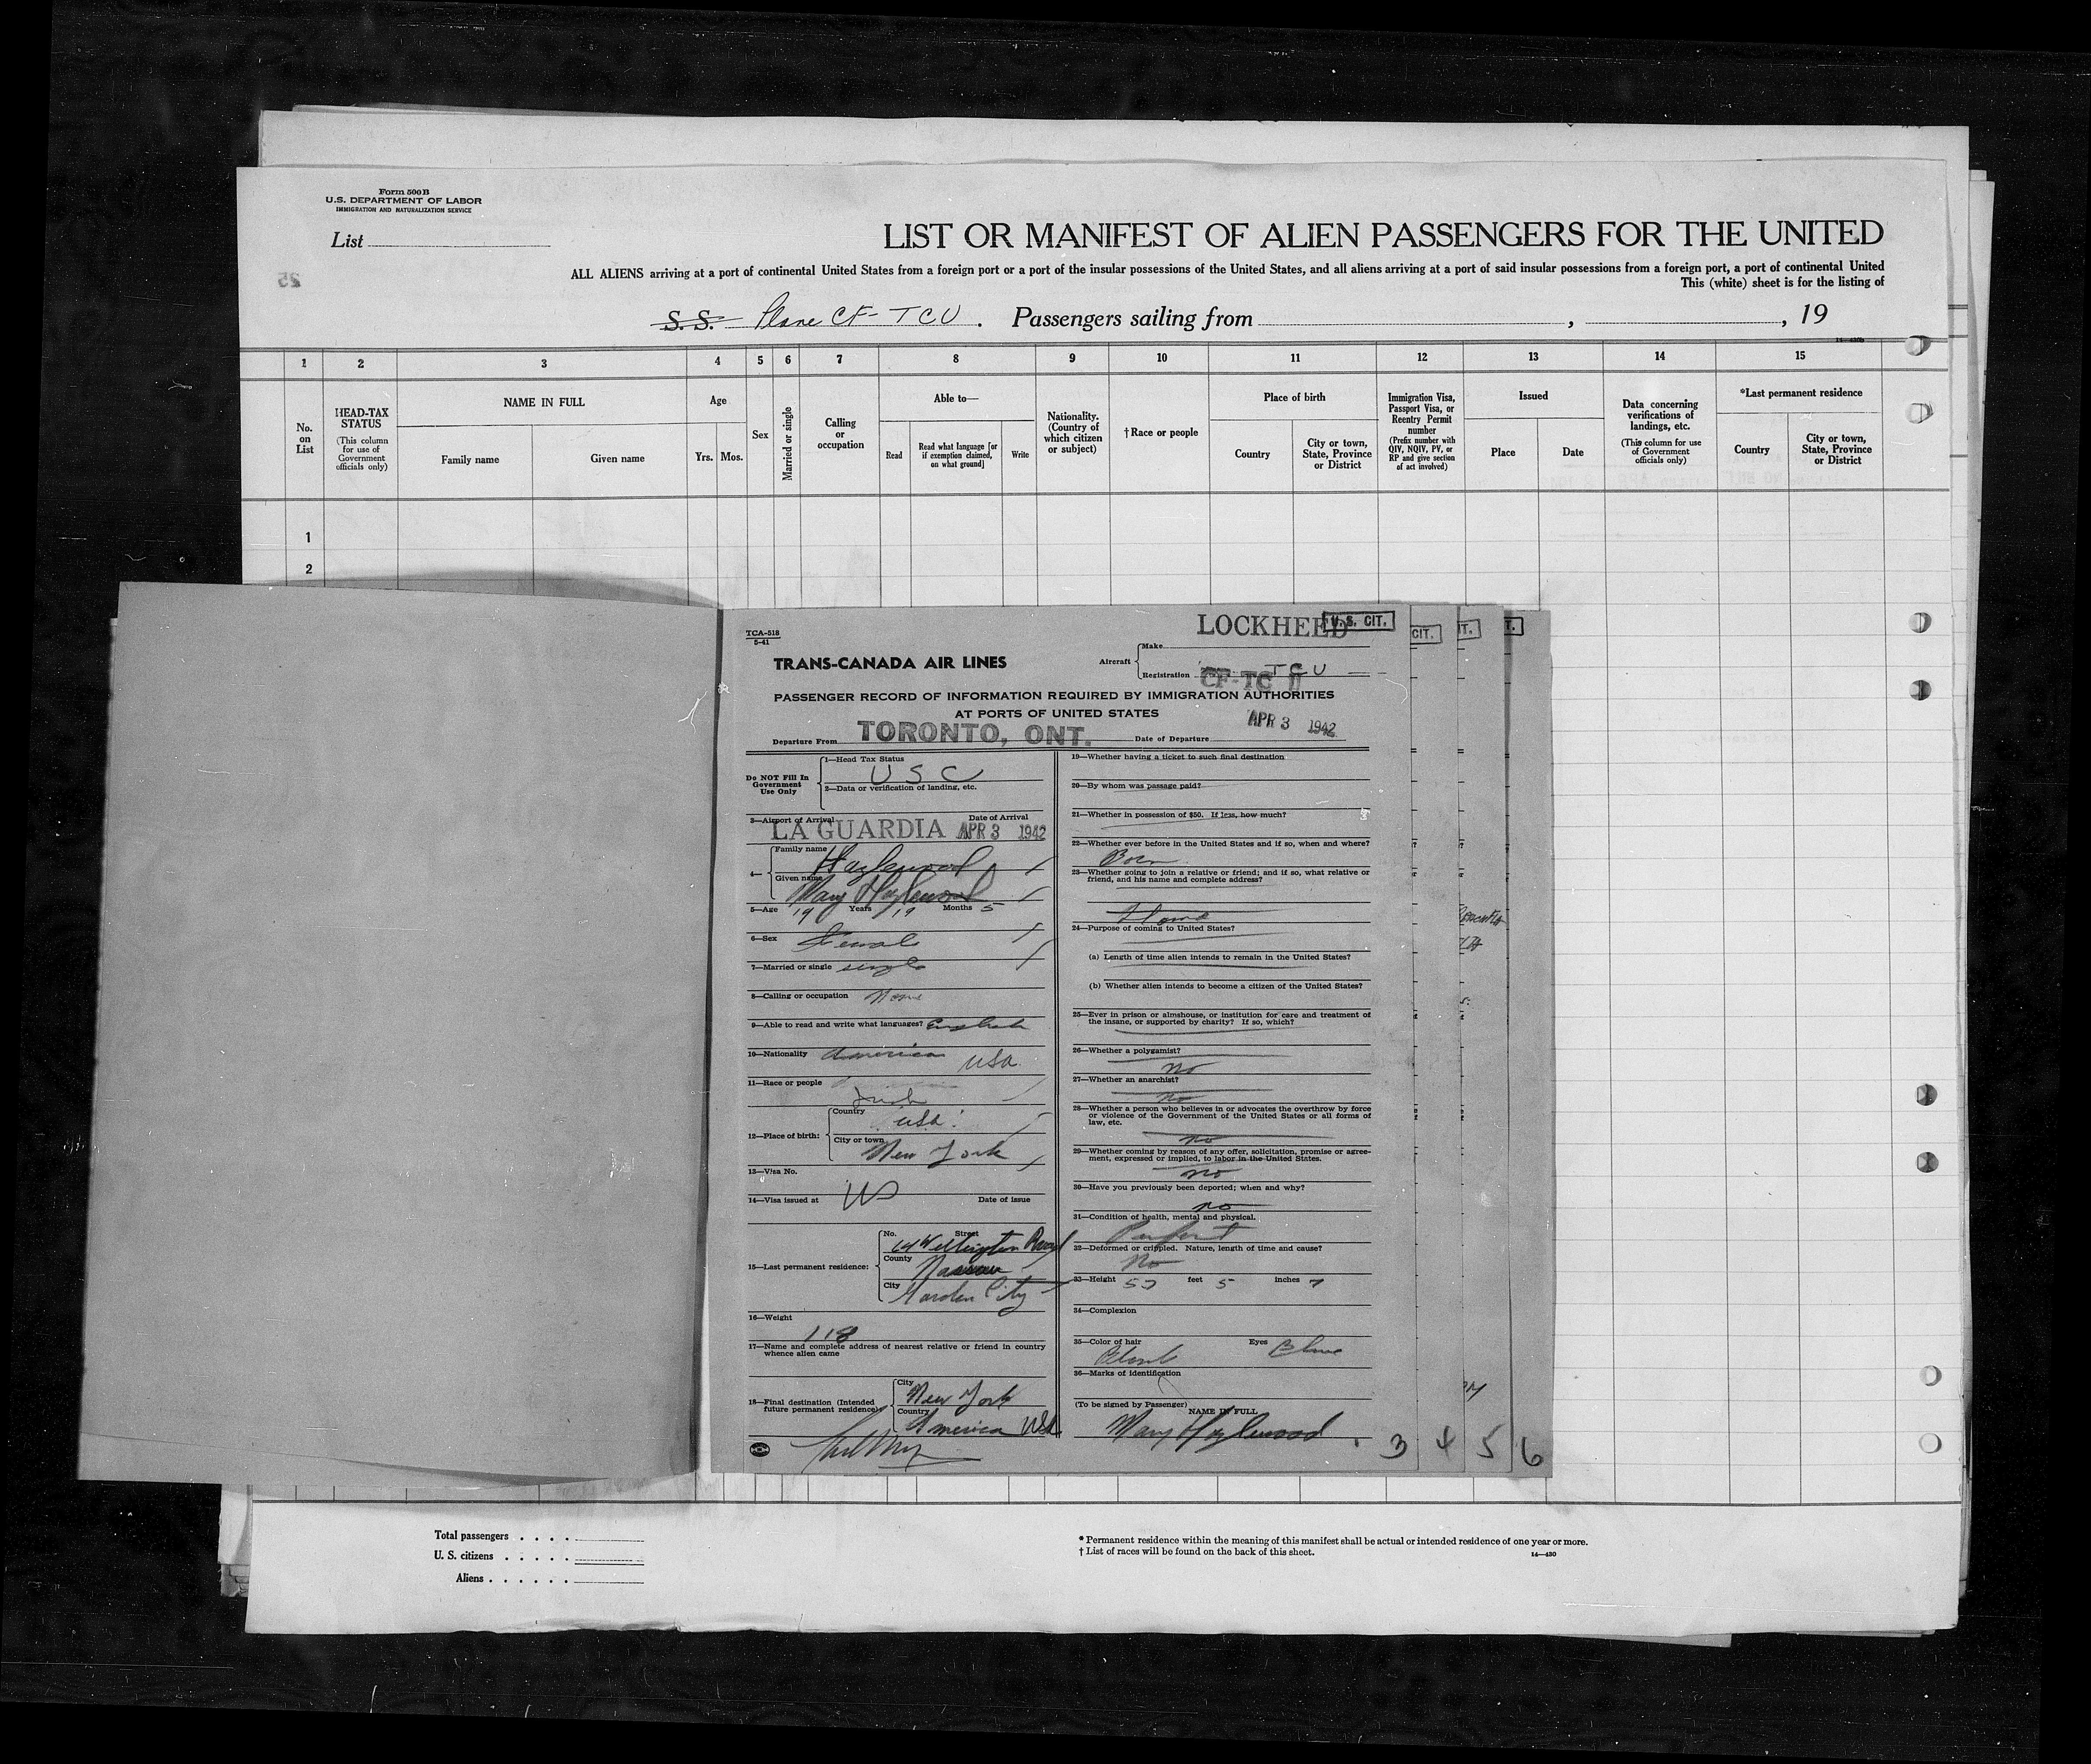 Form 500B
U.S. DEPARTMENT OF LABOR
IMMIGRATION AND NATURALIZATION SERVICE
List
25
LIST OR MANIFEST OF ALIEN PASSENGERS FOR THE UNITED
ALL ALIENS arriving at a port of continental United States from a foreign port or a port of the insular possessions of the United States, and all aliens arriving at a port of said insular possessions from a foreign port, a port of continental United
This (white) sheet is for the listing of
S.S. Plane CF-TCU. Passengers sailing from , , 19
14—430b
1 2 3 4 5 6 7 8 9 10 11 12 13 14 15
No. on List
HEAD-TAX STATUS
(This column for use of Government officials only)
NAME IN FULL
Family name
Given name
Age
Yrs. Mos.
Sex
Married or single
Calling or occupation
Able to—
Read
Read what language [or if exemption claimed, on what ground]
Write
Nationality. (Country of which citizen or subject)
†Race or people
Place of birth
Country
City or town, State, Province or District
Immigration Visa, Passport Visa, or Reentry Permit number
(Prefix number with QIV, NQIV, PV, or RP and give section of act involved)
Issued
Place
Date
Data concerning verifications of landings, etc.
(This column for use of Government officials only)
*Last permanent residence
Country
City or town, State, Province or District
1
2
TCA-518
5-41
LOCKHEED
U.S. CIT.
CIT.
IT.
T.
TRANS-CANADA AIR LINES
Aircraft
Make
Registration CF-TC TCU
PASSENGER RECORD OF INFORMATION REQUIRED BY IMMIGRATION AUTHORITIES
AT PORTS OF UNITED STATES
Departure From TORONTO, ONT. Date of Departure APR 3 1942
Do NOT Fill In
Government
Use Only
1—Head Tax Status
USC
2—Data or verification of landing, etc.
3—Airport of Arrival Date of Arrival
LA GUARDIA APR 3 1942
4—
Family name Haylewood
Given name Mary Haylewood
5—Age 19 Years 19 Months 5
6—Sex Female
7—Married or single single
8—Calling or occupation None
9—Able to read and write what languages? English
10—Nationality America USA
11—Race or people
Irish
12—Place of birth:
Country USA
City or town New York
13—Visa No.
14—Visa issued at US Date of issue
15—Last permanent residence:
No. Street
14 Wellington Road
County Nassau
City Garden City
16—Weight
118
17—Name and complete address of nearest relative or friend in country
whence alien came
18—Final destination (Intended
future permanent residence)
City New York
Country America USA
19—Whether having a ticket to such final destination
20—By whom was passage paid?
21—Whether in possession of $50. If less, how much?
22—Whether ever before in the United States and if so, when and where?
Born
23—Whether going to join a relative or friend; and if so, what relative or
friend, and his name and complete address?
Home
24—Purpose of coming to United States?
(a) Length of time alien intends to remain in the United States?
(b) Whether alien intends to become a citizen of the United States?
25—Ever in prison or almshouse, or institution for care and treatment of
the insane, or supported by charity? If so, which?
26—Whether a polygamist?
No
27—Whether an anarchist?
No
28—Whether a person who believes in or advocates the overthrow by force
or violence of the Government of the United States or all forms of
law, etc.
No
29—Whether coming by reason of any offer, solicitation, promise or agree-
ment, expressed or implied, to labor in the United States.
No
30—Have you previously been deported; when and why?
No
31—Condition of health, mental and physical.
Perfect
32—Deformed or crippled. Nature, length of time and cause?
No
33—Height 57 feet 5 inches 7
34—Complexion
35—Color of hair Eyes Blue
36—Marks of identification
(To be signed by Passenger)
NAME IN FULL
Mary Haylewood
3 4 5 6
Total passengers
U. S. citizens
Aliens
* Permanent residence within the meaning of this manifest shall be actual or intended residence of one year or more.
† List of races will be found on the back of this sheet.
14—430